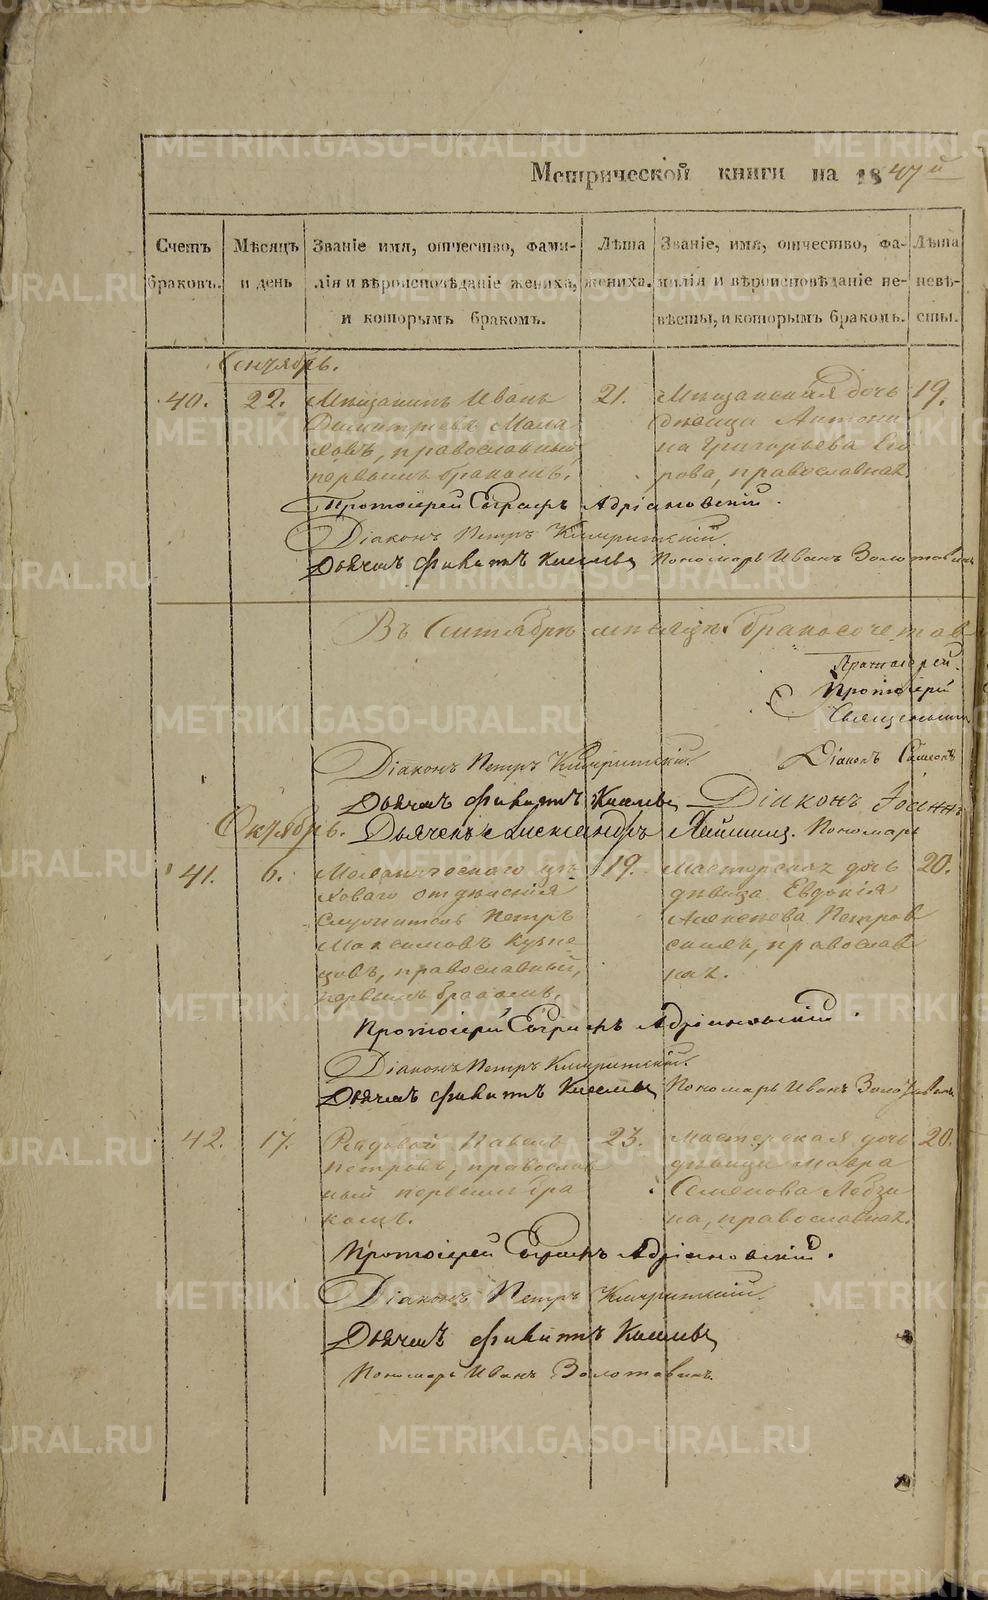 Метрической книги на 1847й
Счетъ браковъ.
Мѣсяцъ и день
Званіе имя, отчество, фами-
лія и вѣроисповѣданіе жениха,
и которымъ бракомъ.
Лѣта
жениха.
Званіе, имя, отчество, фа-
милія и вѣроисповѣданіе не-
вѣсты, и которымъ бракомъ.
Лѣта
невѣ-
сты.
Сентябрь.
40. 22. Мѣщанинъ Иванъ
Димитріевъ
православный
первымъ бракомъ.
21.
Мѣщанская дочь
дѣвица Антони
на Григорьева Его
рова, православная.
19.
Протоіерей Евграфъ Адріановскій.
Діаконъ Петръ
Дьячекъ Филиппъ Киселевъ Пономарь Иванъ Золотавинъ
Въ Сентябрѣ мѣсяцѣ бракосочетав
Протоіерей
Протоіерей
Священникъ
Діаконъ Петръ
Діаконъ
Дьячекъ Филиппъ Киселевъ Діаконъ Іоаннъ
Октябрь. Дьячекъ Александръ Пономарь
41. 6. Механическаго цѣ
ховаго отдѣленія
служитель Петръ
Максимовъ Кузне
цовъ, православный,
первымъ бракомъ.
19.
Мастерская дочь
дѣвица Евдокія
Алексѣева Петров
ская, православ
ная.
20.
Протоіерей Евграфъ Адріановскій.
Діаконъ Петръ
Дьячекъ Филиппъ Киселевъ Пономарь Иванъ Золотавинъ
42. 17. Рядовой Павелъ
Петровъ, православ
ный первымъ бра
комъ.
23.
Мастерская дочь
дѣвица Мавра
Семенова
на, православная.
20.
Протоіерей Евграфъ Адріановскій.
Діаконъ Петръ
Дьячекъ Филиппъ Киселевъ
Пономарь Иванъ Золотавинъ.
METRIKI.GASO-URAL.RU